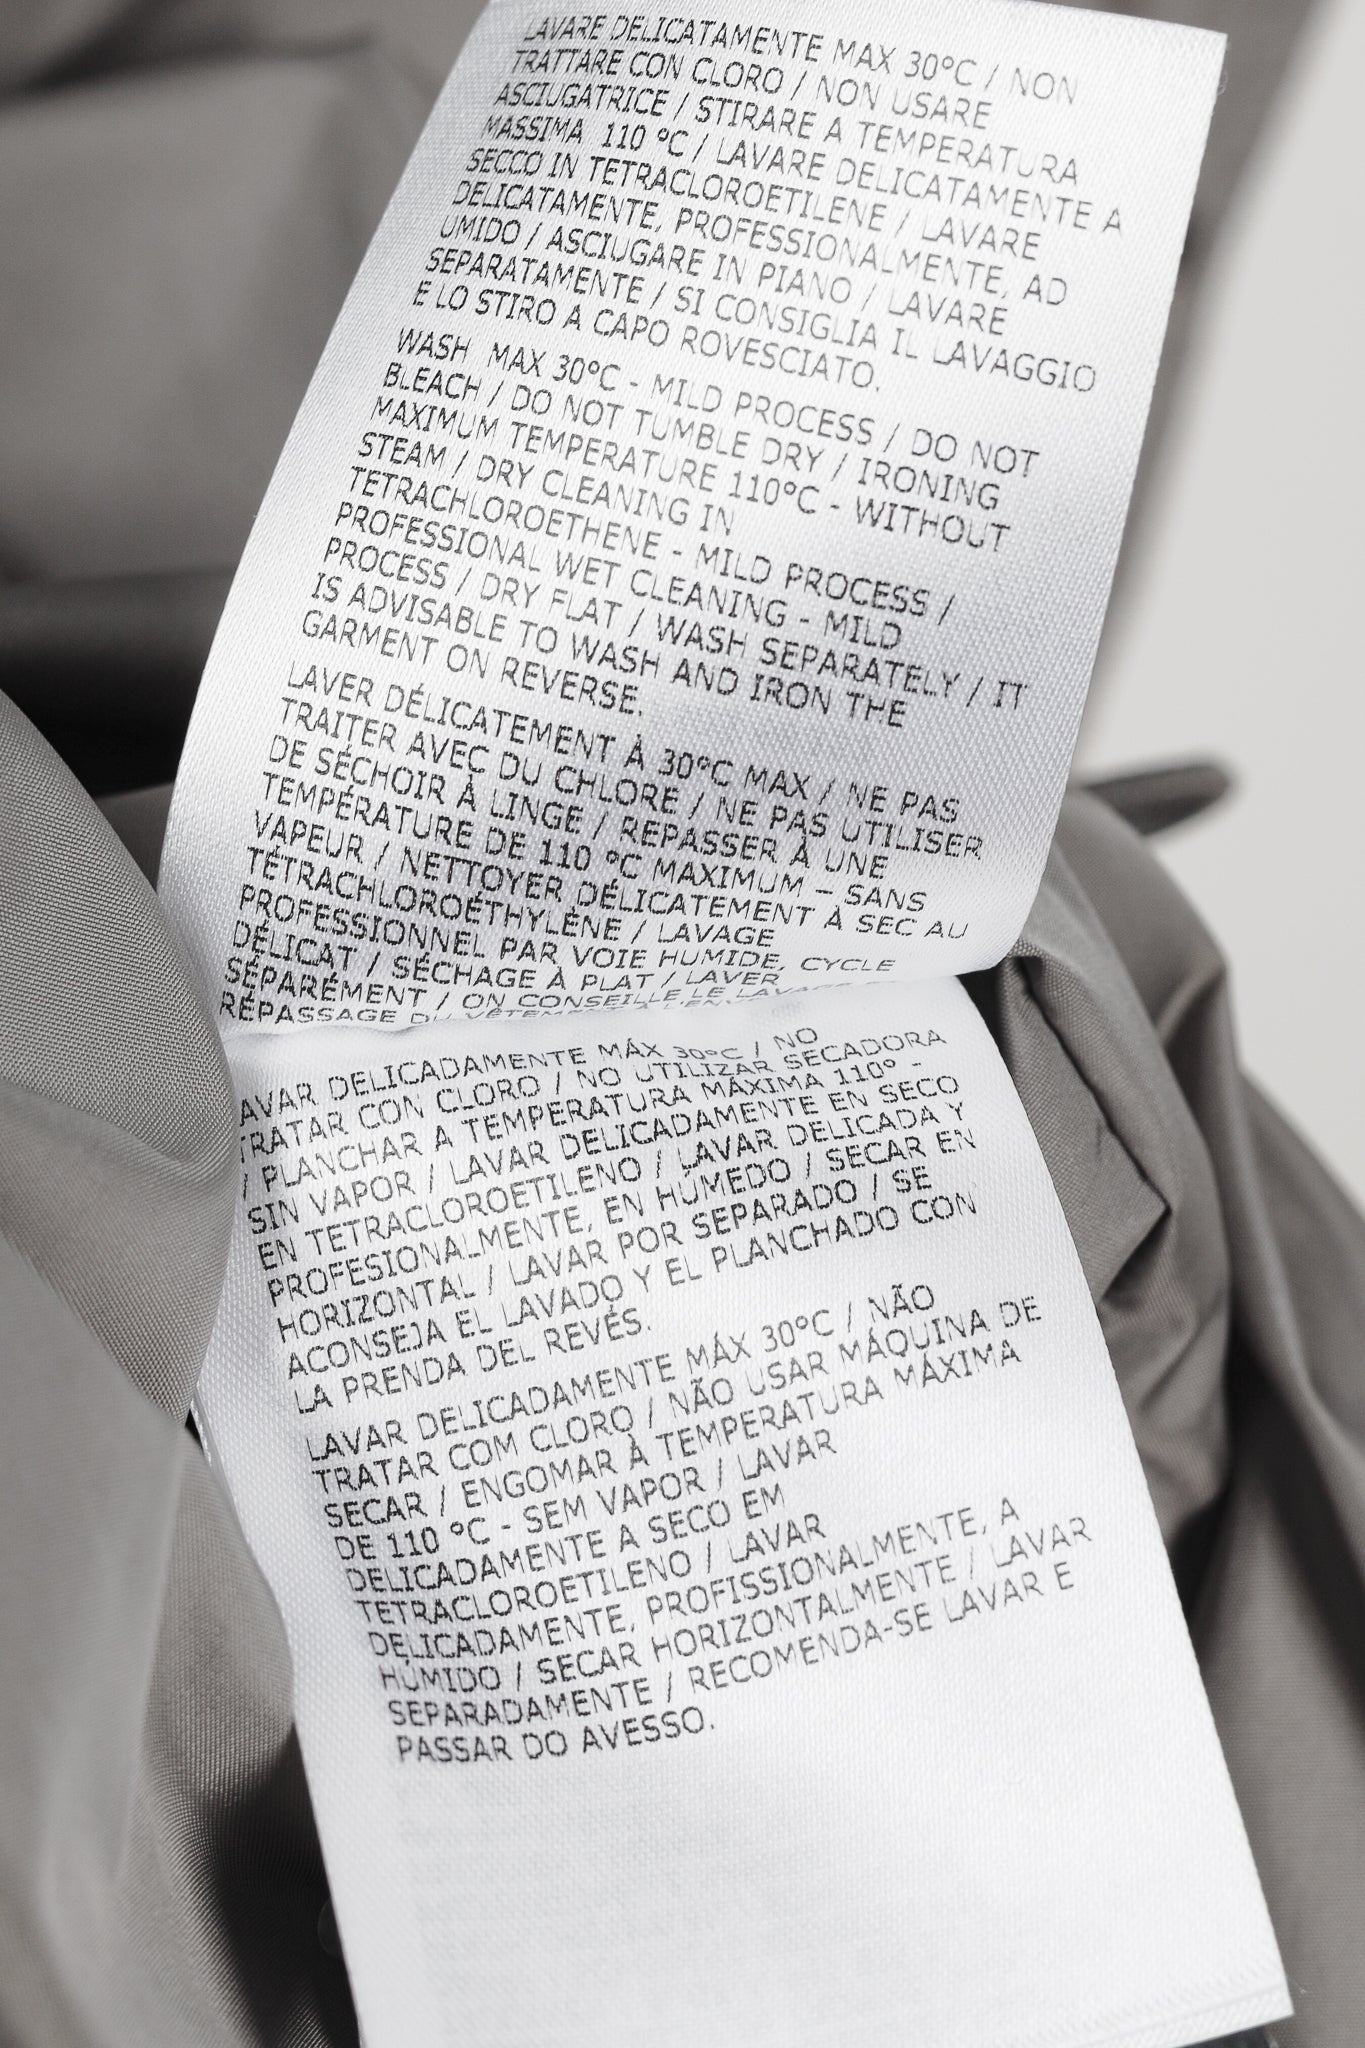 LAVARE DELICATAMENTE MAX 30°C / NON
TRATTARE CON CLORO / NON USARE
ASCIUGATRICE / STIRARE A TEMPERATURA
MASSIMA 110 °C / LAVARE DELICATAMENTE A
SECCO IN TETRACLOROETILENE / LAVARE
DELICATAMENTE, PROFESSIONALMENTE, AD
UMIDO / ASCIUGARE IN PIANO / LAVARE
SEPARATAMENTE / SI CONSIGLIA IL LAVAGGIO
E LO STIRO A CAPO ROVESCIATO.
WASH MAX 30°C - MILD PROCESS / DO NOT
BLEACH / DO NOT TUMBLE DRY / IRONING
MAXIMUM TEMPERATURE 110°C - WITHOUT
STEAM / DRY CLEANING IN
TETRACHLOROETHENE - MILD PROCESS /
PROFESSIONAL WET CLEANING - MILD
PROCESS / DRY FLAT / WASH SEPARATELY / IT
IS ADVISABLE TO WASH AND IRON THE
GARMENT ON REVERSE.
LAVER DÉLICATEMENT À 30°C MAX / NE PAS
TRAITER AVEC DU CHLORE / NE PAS UTILISER
DE SÉCHOIR À LINGE / REPASSER À UNE
TEMPÉRATURE DE 110 °C MAXIMUM – SANS
VAPEUR / NETTOYER DÉLICATEMENT À SEC AU
TÉTRACHLOROÉTHYLÈNE / LAVAGE
PROFESSIONNEL PAR VOIE HUMIDE, CYCLE
DÉLICAT / SÉCHAGE À PLAT / LAVER
SÉPARÉMENT / ON CONSEILLE LE LAVAGE
RÉPASSAGE DU VÊTEMENT À
AVAR DELICADAMENTE MÁX 30°C / NO
TRATAR CON CLORO / NO UTILIZAR SECADORA
/ PLANCHAR A TEMPERATURA MÁXIMA 110° -
SIN VAPOR / LAVAR DELICADAMENTE EN SECO
EN TETRACLOROETILENO / LAVAR DELICADA Y
PROFESIONALMENTE, EN HÚMEDO / SECAR EN
HORIZONTAL / LAVAR POR SEPARADO / SE
ACONSEJA EL LAVADO Y EL PLANCHADO CON
LA PRENDA DEL REVÉS.
LAVAR DELICADAMENTE MÁX 30°C / NÃO
TRATAR COM CLORO / NÃO USAR MÁQUINA DE
SECAR / ENGOMAR À TEMPERATURA MÁXIMA
DE 110 °C - SEM VAPOR / LAVAR
DELICADAMENTE A SECO EM
TETRACLOROETILENO / LAVAR
DELICADAMENTE, PROFISSIONALMENTE, A
HÚMIDO / SECAR HORIZONTALMENTE / LAVAR
SEPARADAMENTE / RECOMENDA-SE LAVAR E
PASSAR DO AVESSO.